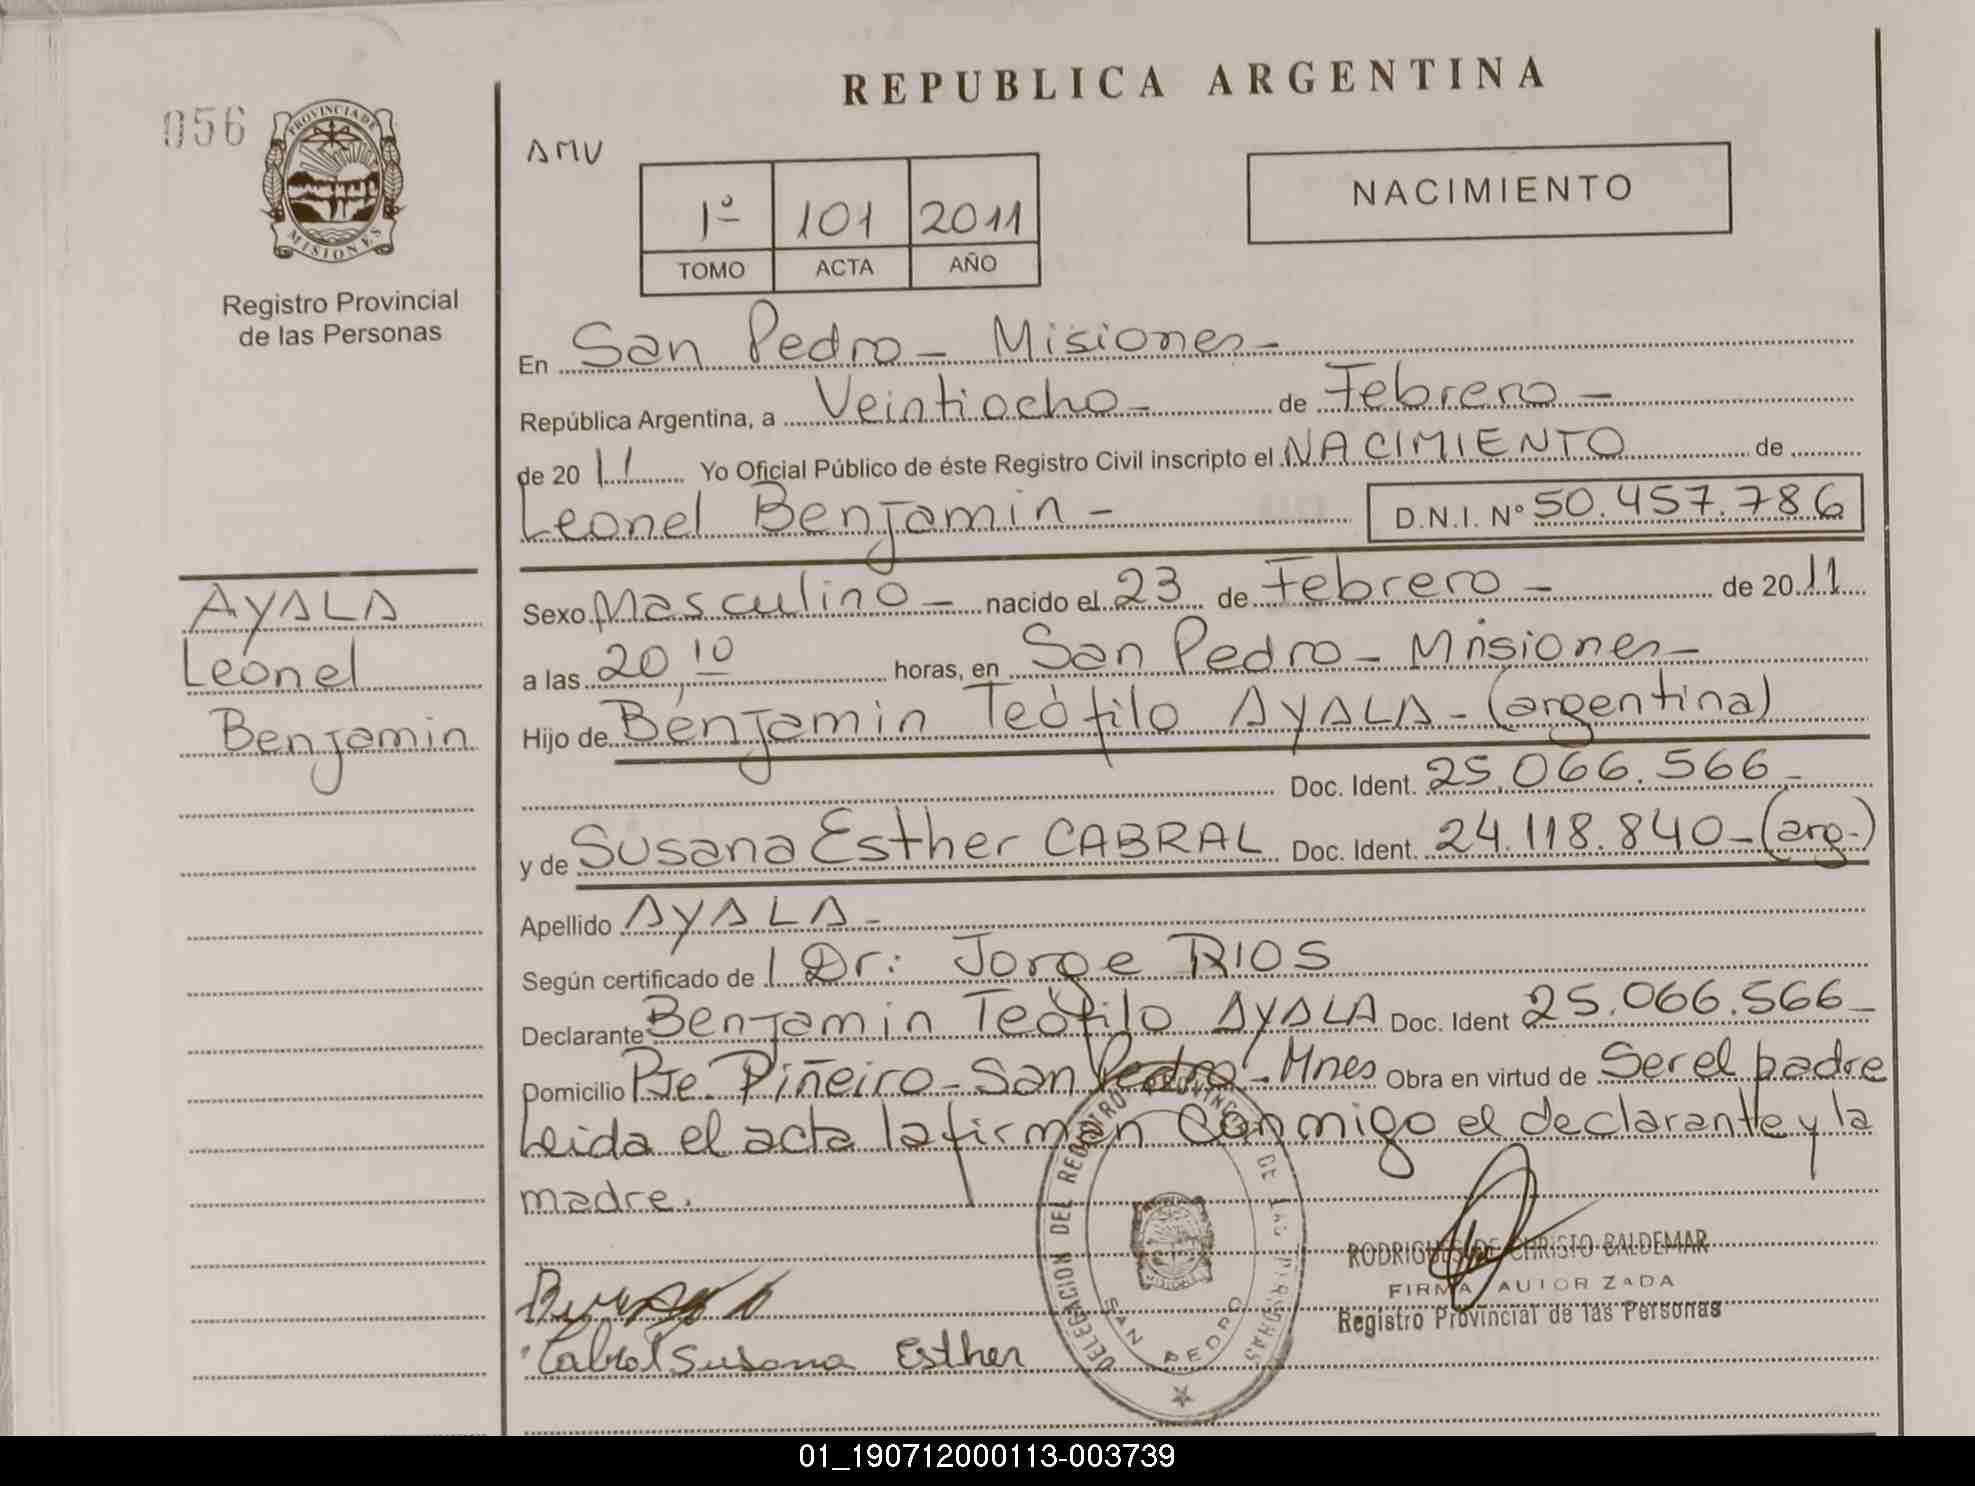 REPUBLICA ARGENTINA
056
PROVINCIA DE
MISIONES
Registro Provincial
de las Personas
AMV
1º 101 2011
TOMO ACTA AÑO
NACIMIENTO
En San Pedro - Misiones -
República Argentina, a Veintiocho - de Febrero -
de 20 11 Yo Oficial Público de éste Registro Civil inscripto el NACIMIENTO de
Leonel Benjamin - D.N.I. Nº 50.457.786
AYALA
Leonel
Benjamin
Sexo Masculino - nacido el 23 de Febrero - de 20 11
a las 20,10 horas, en San Pedro - Misiones -
Hijo de Benjamin Teófilo AYALA - (argentina)
Doc. Ident. 25.066.566 -
y de Susana Esther CABRAL Doc. Ident. 24.118.840 - (arg.)
Apellido AYALA -
Según certificado de Dr: Jorge RIOS
Declarante Benjamin Teófilo AYALA Doc. Ident 25.066.566 -
Domicilio Pje. Piñeiro - San Pedro - Mnes Obra en virtud de Ser el padre
Leida el acta la firman conmigo el declarante y la
madre.
DELEGACION DEL REGISTRO PROVINCIAL DE LAS PERSONAS
SAN PEDRO
RODRIGUES DE CHRISTO BALDEMAR
FIRMA AUTORIZADA
Registro Provincial de las Personas
Cabral Susana Esther
01_190712000113-003739